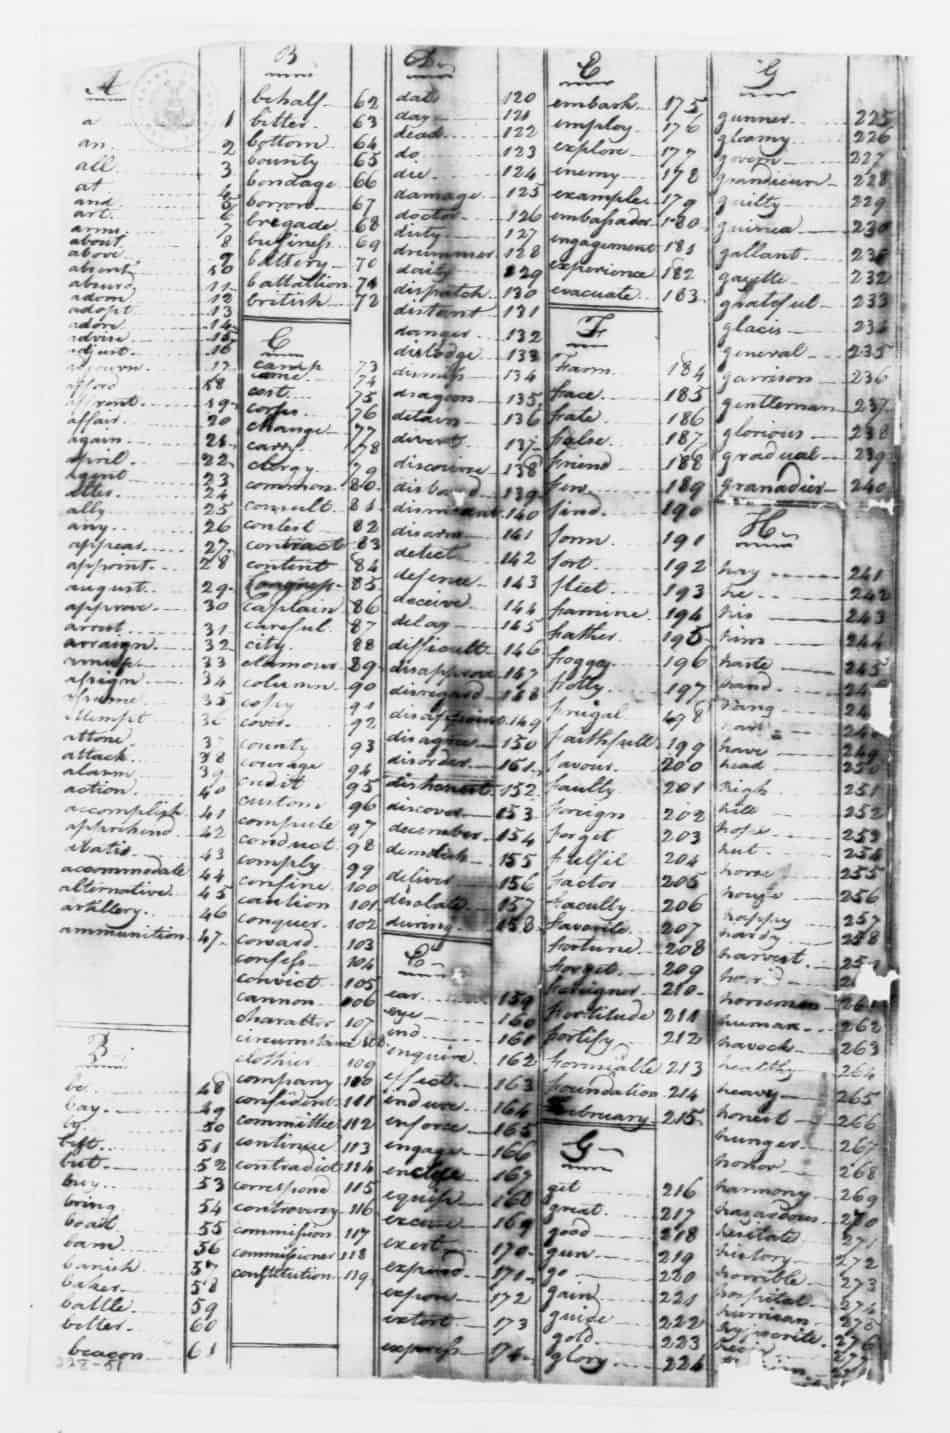 A
a 1
an 2
all 3
at 4
and 5
art 6
arms 7
about 8
above 9
absent 10
absurd 11
adorn 12
adopt 13
adore 14
advise 15
adjust 16
adjourn 17
afford 18
affront 19
affair 20
again 21
april 22
agent 23
alter 24
ally 25
any 26
appear 27
appoint 28
august 29
approve 30
arrest 31
arraign 32
amuse 33
assign 34
assume 35
attempt 36
attone 37
attack 38
alarm 39
action 40
accomplish 41
apprehend 42
abatis 43
accommodate 44
alternative 45
artillery 46
ammunition 47
B
be 48
bay 49
by 50
best 51
but 52
buy 53
bring 54
boat 55
barn 56
banish 57
baker 58
battle 59
better 60
beacon 61
B
behalf 62
bitter 63
bottom 64
bounty 65
bondage 66
borrow 67
bregade 68
business 69
battery 70
battallion 71
british 72
C
camp 73
came 74
cost 75
corps 76
change 77
carry 78
clergy 79
common 80
consult 81
contest 82
contract 83
content 84
Congress 85
captain 86
careful 87
city 88
clamour 89
column 90
copy 91
cover 92
county 93
courage 94
credit 95
custom 96
compute 97
conduct 98
comply 99
confine 100
caution 101
conquer 102
coward 103
confess 104
convict 105
cannon 106
charattor 107
circumstance 108
clothier 109
company 110
confident 111
committee 112
continue 113
contradict 114
correspond 115
controversy 116
commission 117
commissioner 118
constitution 119
D
date 120
day 121
dead 122
do 123
die 124
damage 125
doctor 126
duty 127
drummer 128
daily 129
dispatch 130
distant 131
danger 132
dislodge 133
dismiss 134
dragoon 135
detain 136
divert 137
discourse 138
disband 139
dismount 140
disarm 141
detect 142
defence 143
deceive 144
delay 145
difficult 146
disapprove 147
disregard 148
disappoint 149
disagree 150
disorder 151
dishonest 152
discover 153
december 154
demolish 155
deliver 156
desolate 157
during 158
E
ear 159
eye 160
end 161
enquire 162
effect 163
endure 164
enforce 165
engage 166
enclose 167
equip 168
excuse 169
exert 170
expend 171
expose 172
extort 173
express 174
E
embark 175
employ 176
explore 177
enemy 178
example 179
embassador 180
engagement 181
experience 182
evacuate 183
F
Farm 184
face 185
fate 186
false 187
friend 188
few 189
find 190
form 191
fort 192
fleet 193
famine 194
father 195
foggy 196
folly 197
frugal 198
faithfull 199
favour 200
faulty 201
foreign 202
forget 203
fulfil 204
factor 205
faculty 206
favorite 207
fortune 208
forget 209
foreigner 210
fortitude 211
fortify 212
formidable 213
foundation 214
february 215
G
get 216
great 217
good 218
gun 219
go 220
gain 221
guide 222
gold 223
glory 224
G
gunner 225
gloomy 226
govern 227
grandieur 228
guilty 229
guinea 230
gallant 231
gazette 232
grateful 233
glacis 234
general 235
garrison 236
gentleman 237
glorious 238
gradual 239
granadier 240
H
hay 241
he 242
his 243
him 244
haste 245
hand
hang
have 249
head 250
high 251
hill 252
hope 253
hut 254
horse 255
house 256
happy 257
hardy 258
harvest
horrid
horsemen 261
human 262
havock 263
healthy 264
heavy 265
honest 266
hunger 267
honor 268
harmony 269
hazardous 270
hesitate 271
history 272
horrible 273
hospital 274
hurrican 275
hypocrite 276
228-81